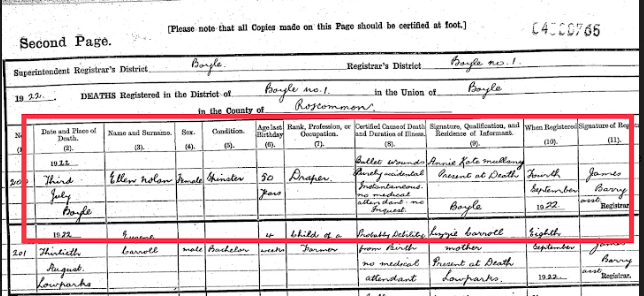 [Please note that all Copies made on this Page should be certified at foot.]
Second Page.
04500765
Superintendent Registrar's District Boyle. Registrar's District Boyle no. 1.
1922. DEATHS Registered in the District of Boyle no. 1. in the Union of Boyle
in the County of Roscommon.
Date and Place of Death. (2).
Name and Surname. (3).
Sex. (4).
Condition. (5).
Age last Birthday (6).
Rank, Profession, or Occupation. (7).
Certified Cause of Death and Duration of Illness. (8).
Signature, Qualification, and Residence of Informant. (9).
When Registered (10).
Signature of Regist (11).
1922 Third July Boyle
Ellen Nolan
Female
Spinster
50 Years
Draper.
Bullet wounds Purely accidental Instantaneous. no medical attendant. no Inquest.
Annie Kate Mullany Present at Death Boyle
Fourth September 1922
James Barry asst. Registrar
201
1922 Thirtieth August. Lowparks
Carroll
male
Bachelor
4 weeks
Child of a Farmer
Probably Debility from Birth no medical attendant
Lizzie Carroll mother Present at Death Lowparks.
Eighth September 1922
James Barry asst. Registrar